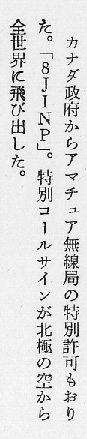 カナダ政府からアマチュア無線局の特別許可もおり
た。「8J1NP」。特別コールサインが北極の空から
全世界に飛び出した。